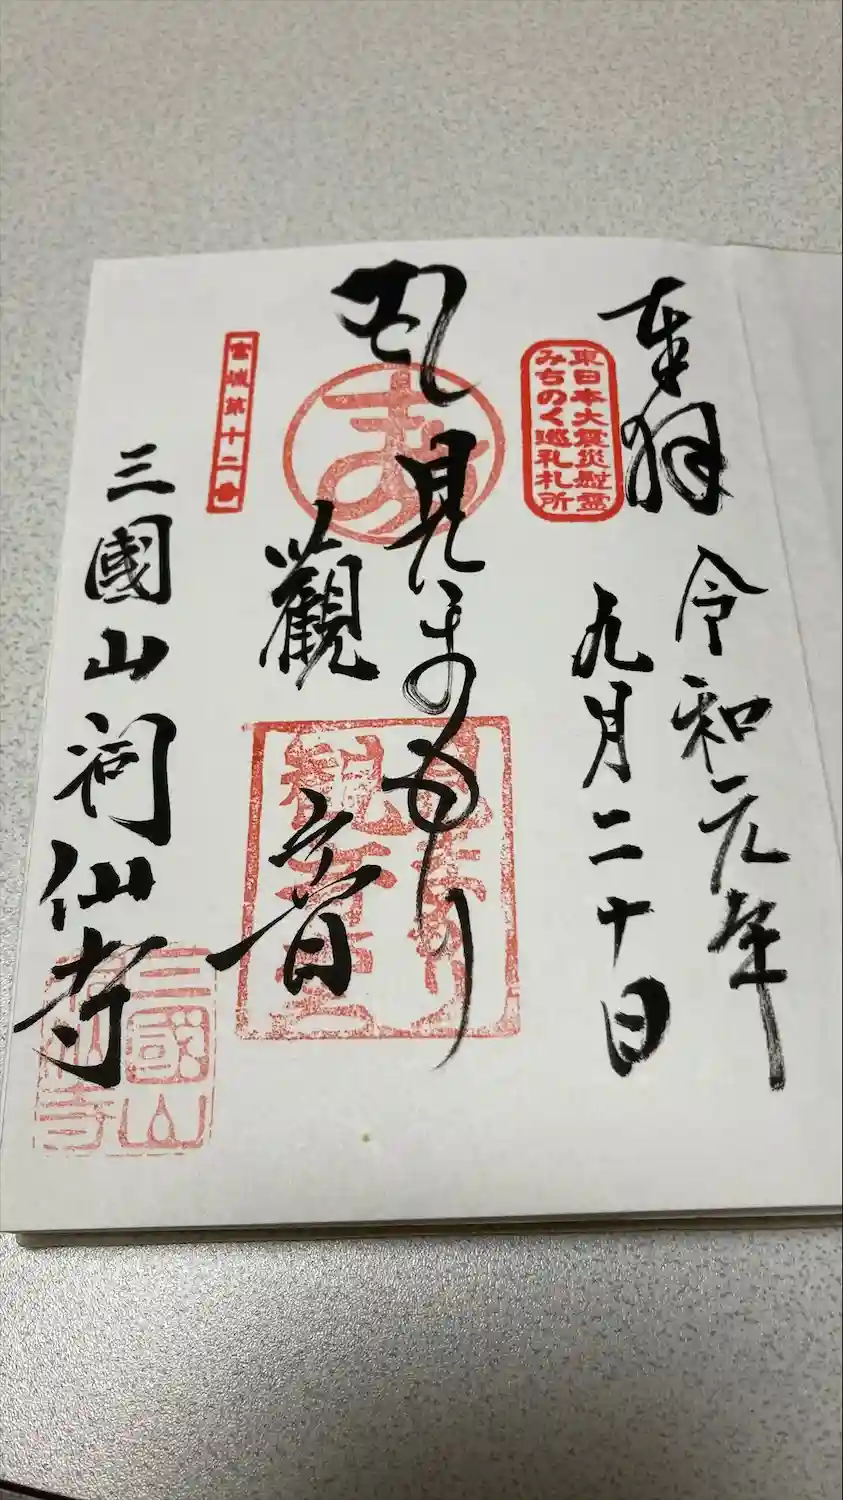 奉拝
令和元年
九月二十日
東日本大震災慰霊
みちのく巡礼札所
見まもり
觀音
宮城第十二番
三國山祠仙寺
三國山
祠仙寺